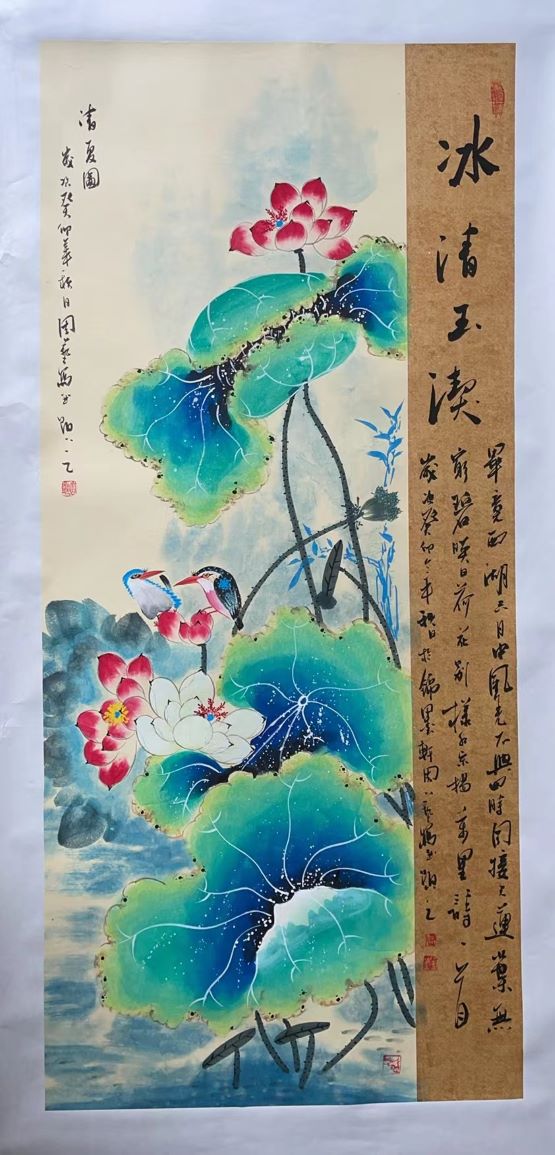 冰清玉潔
畢竟西湖六月中風光不與四時同接天蓮葉無
窮碧映日荷花別樣紅楊萬里詩一首
歲次癸卯年秋日於錦墨軒周
清夏圖
歲次癸卯年秋日周藝寫